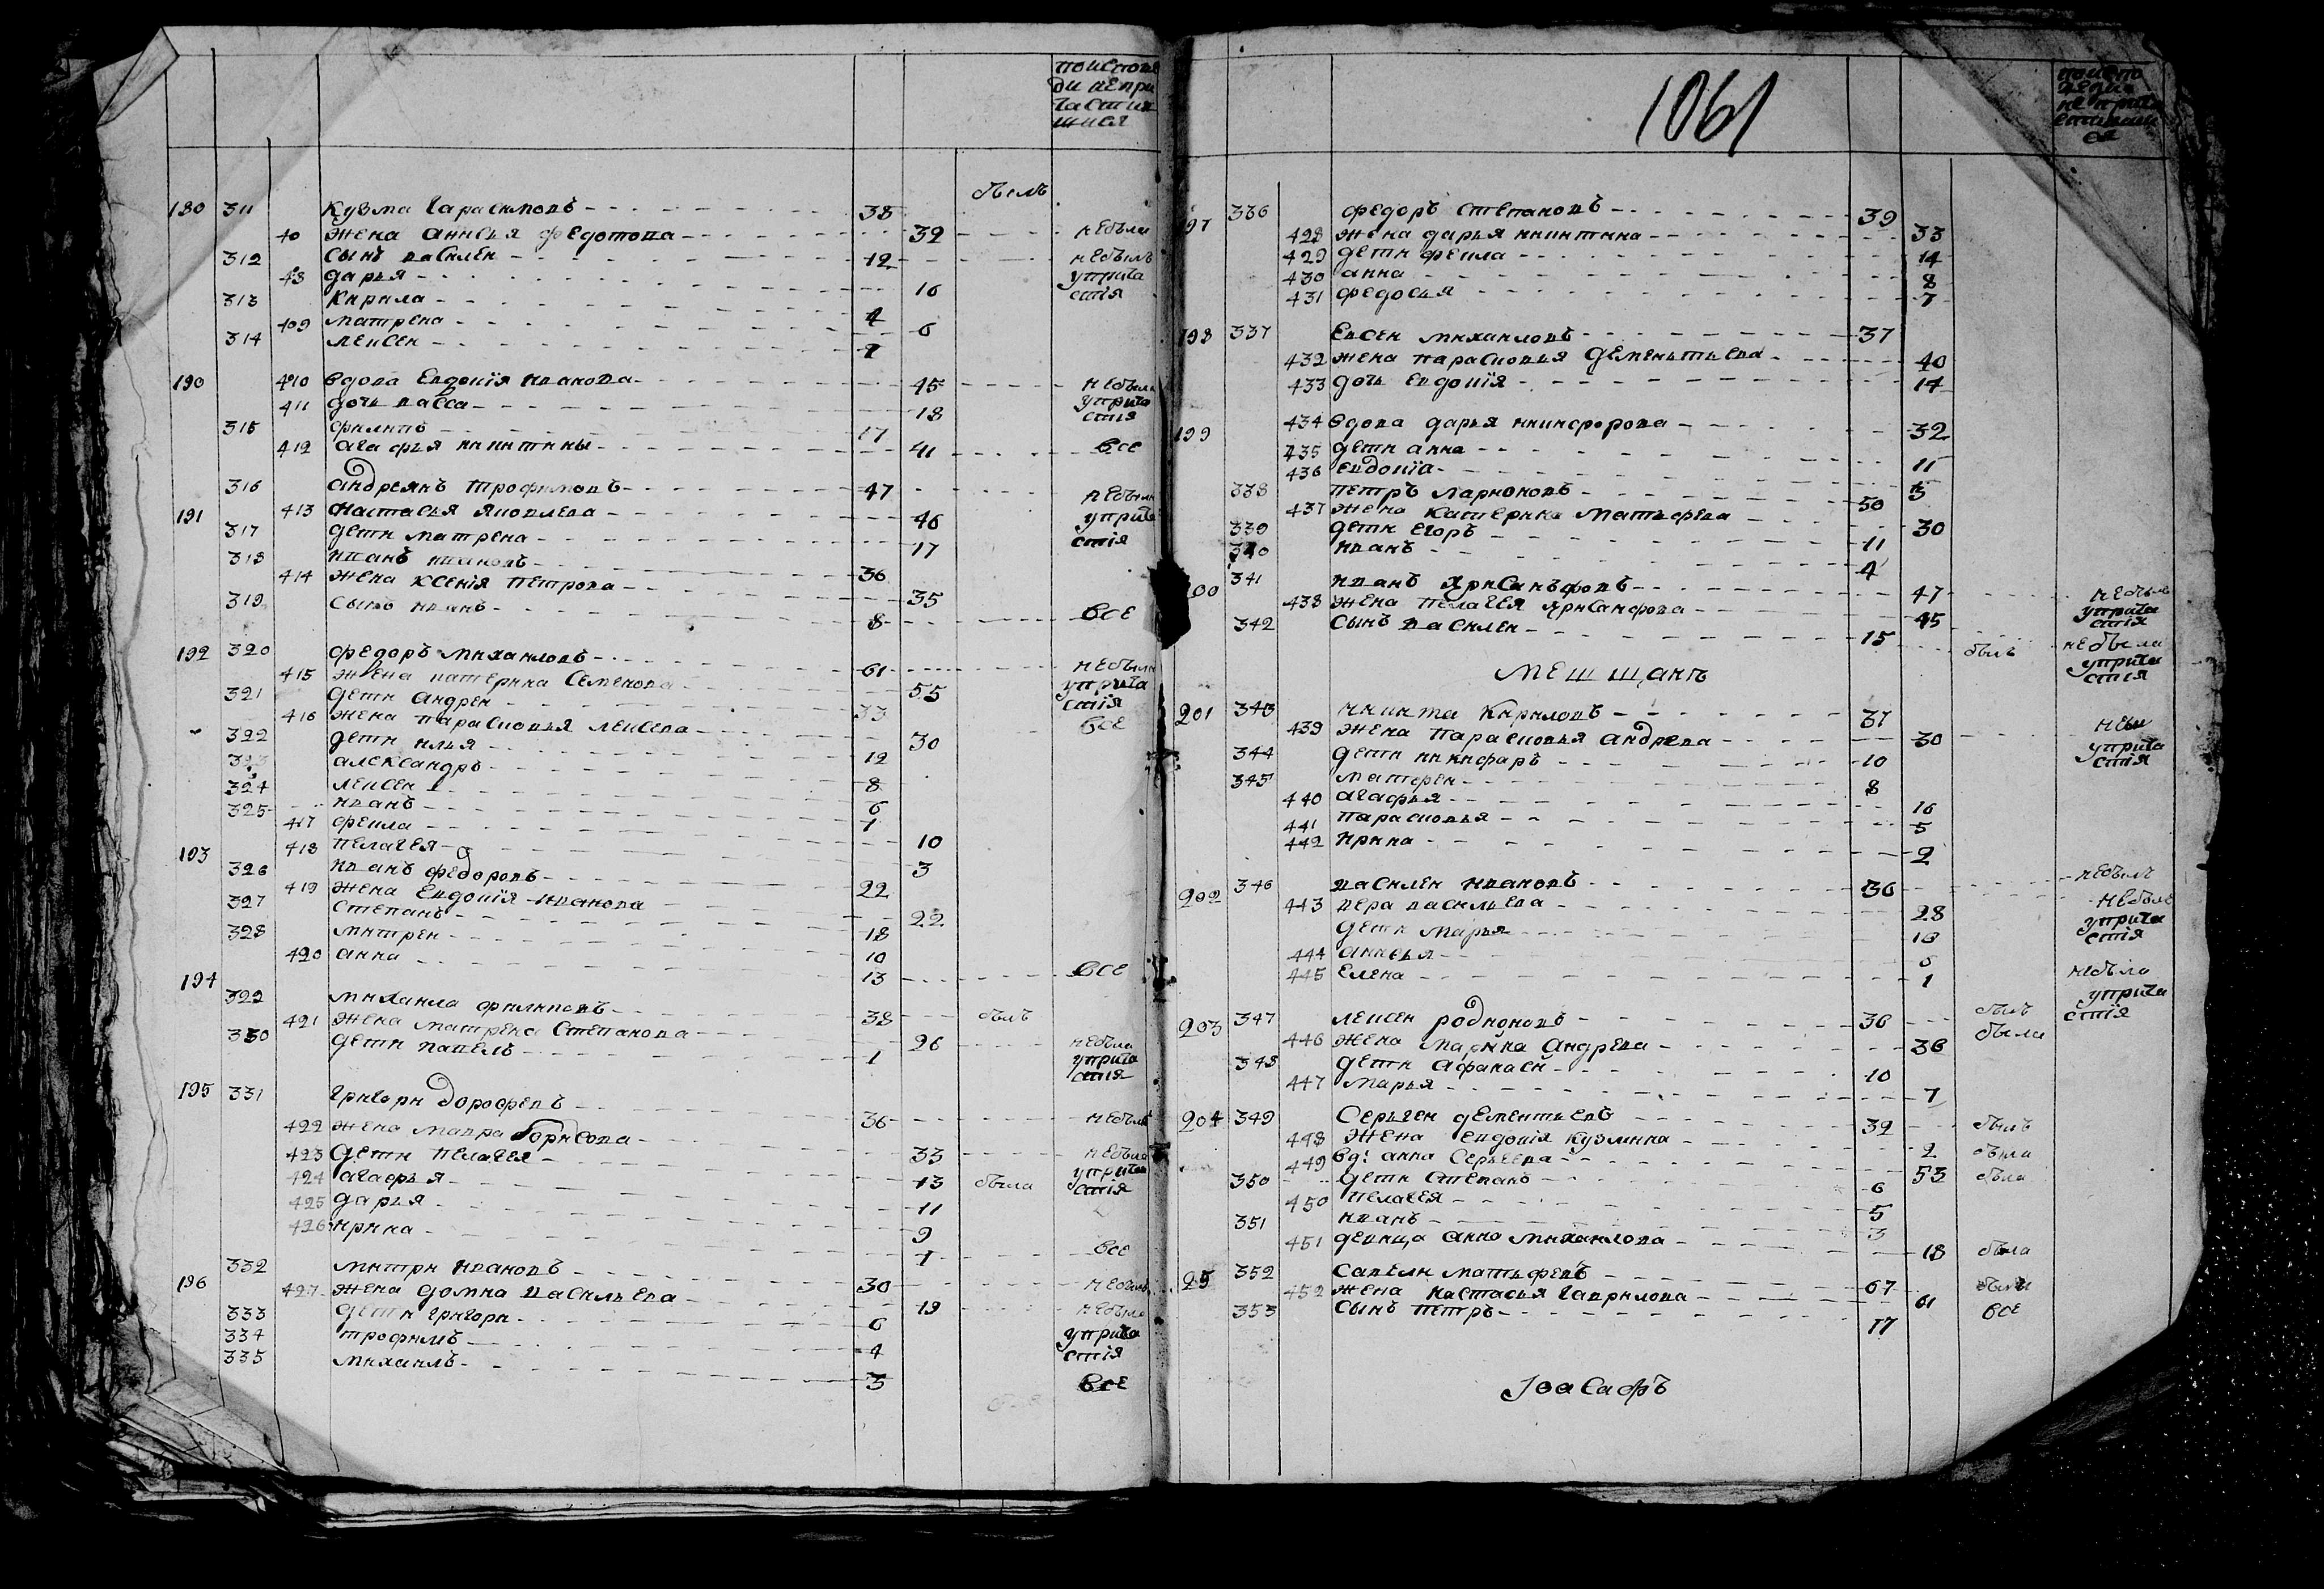 поисповѣ
ди непри
частив
шися
былъ
180 311 Кузма Гарасимовъ 38
40 жена анисья федотова 32 небыла
312 сынъ василеи 12 небылъ
43 дарья 16 уприча
313 Кирила 4 стія
409 матрена 6
314 леѯсеи 1
190 410 вдова Евдокїя иванова 45 небыла
411 дочь васса 18 уприча
стія
315 филипъ 17
412 агафья никитины 41 все
316 андреянъ трофимовъ 47 небыли
191 413 настасья яковлева 46 уприча
317 дети матрена 17 стія
318 иванъ ивановъ 36
414 жена ксенїя петрова 35
319 сынъ иванъ 8 все
192 320 федоръ михаиловъ 61 небыли
415 жена катерина семенова 55 уприча
321 дети андреи 33 стія
416 жена парасковья леѯсева 30 все
322 дети илья 12
323 александръ 8
324 леѯсеи 6
325 иванъ 1
417 фекла 10
418 пелагея 3
193
326 иванъ федоровъ 22
419 жена Евдокїя иванова 22
327 степанъ 18
328 митреи 10
420 анна 13 все
194
329 михаила филиповъ 38 былъ
421 жена матрена степанова 26 небыла
330 дети павелъ 1 уприча
стія
195 331 григори дорофеевъ 36 небылъ
422 жена мавра борисова 33 небыла
423 дети пелагея 13 была уприча
424 агафья 11 стія
425 дарья 9
426 ирина 1 все
332 митри ивановъ 30 небылъ
196 427 жена домна васильева 19 небыла
333 дети григори 6 уприча
334 трофимъ 4 стія
335 михаилъ 3 все
1061
поиспо
веди
не прича
стивши
ся
197 336 федоръ степановъ 39
428 жена дарья никитина 33
429 дети фекла 14
430 анна 8
431 федосья 7
198 337 Евсеи михаиловъ 37
432 жена парасковья дементьева 40
433 дочь евдокїя 14
199 434 вдова дарья никифорова 32
435 дети анна 11
436 евдокїа 5
338 петръ ларионовъ 50
437 жена катерина матьфева 30
339 дети егоръ 11
340 иванъ 4
200 341 иванъ хрисанъфовъ 47 небыли
438 жена пелагея хрисанфова 45 уприча
стія
342 сынъ василеи 15 былъ небыла
уприча
стія
мешщанъ
201 343 никита Кириловъ 37
439 жена парасковья андрева 30 небы
344 дети никифаръ 10 уприча
345 матфеи 8 стія
440 агафья 16
441 парасковья 5
442 ирина 2
202 346 василеи ивановъ 36 небылъ
443 вера васильева 28 небыла
дети марья 10 уприча
444 анисья 5 стія
445 Елена 1 небыла
уприча
203 347 леѯсеи родионовъ 36 былъ стія
446 жена марина андрева 36 была
348 дети афанасеи 10
447 марья 7
204 349 Сергеи дементьевъ 32 былъ
448 жена евдокія кузмина 2 была
449 вд: анна сергеева 53 была
350 дети степанъ 6
450 пелагея 5
351 иванъ 3
451 девица анна михаилова 18 была
25 352 савели матьфевъ 67 были
452 жена настасья гаврилова 61 все
353 сынъ петръ 17
Іоасафъ